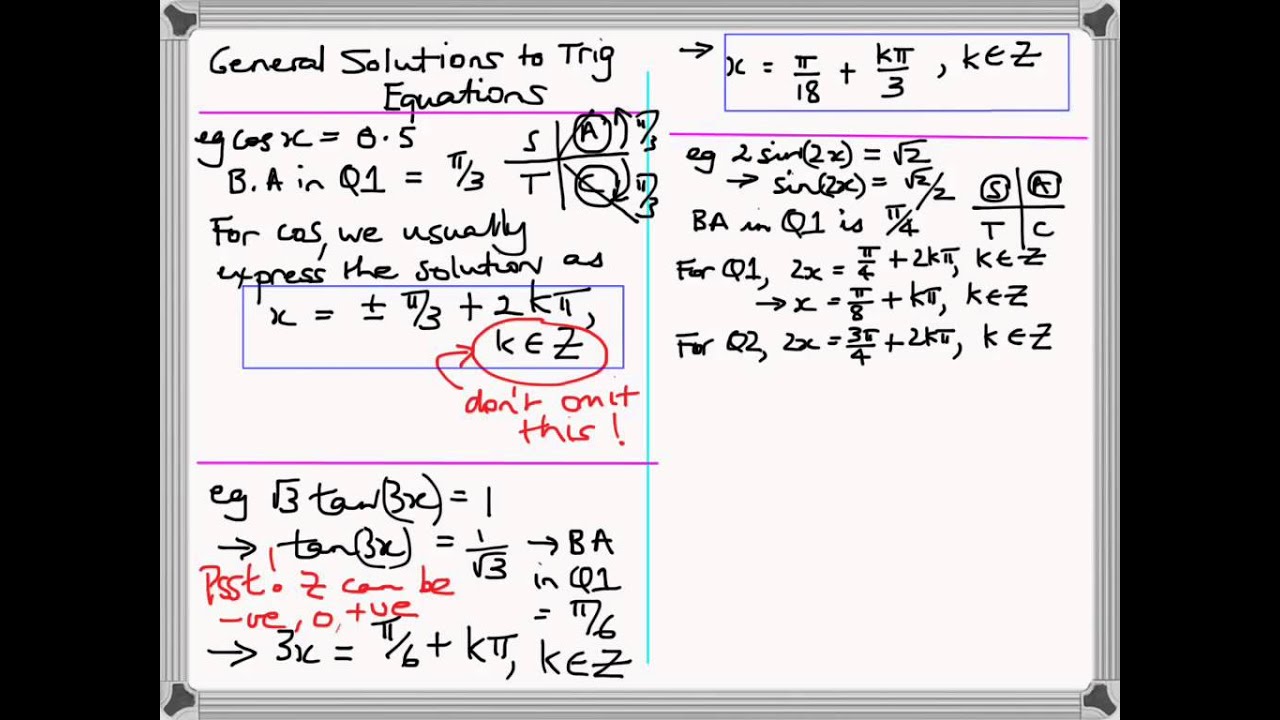 General Solutions to Trig
Equations
eg cos x = 0.5
B.A in Q1 = π/3
S A π/3
T C π/3
For cos, we usually
express the solution as
x = ± π/3 + 2kπ,
k ∈ Z
don't omit
this!
eg √3 tan(3x) = 1
→ tan(3x) = 1/√3 → BA
in Q1
= π/6
Psst! Z can be
-ve, 0, +ve
→ 3x = π/6 + kπ, k ∈ Z
→ x = π/18 + kπ/3, k ∈ Z
eg 2 sin(2x) = √2
→ sin(2x) = √2/2
S A
T C
BA in Q1 is π/4
For Q1, 2x = π/4 + 2kπ, k ∈ Z
→ x = π/8 + kπ, k ∈ Z
For Q2, 2x = 3π/4 + 2kπ, k ∈ Z